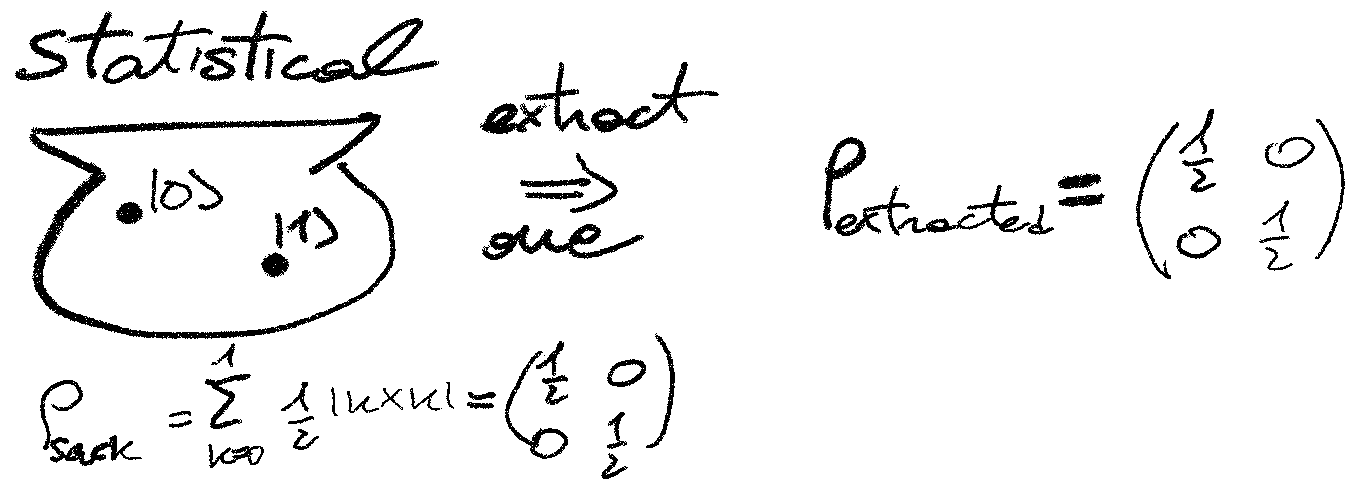 Statistical
|0⟩
|1⟩
extract
⇒
one
ρ_extracted = (1/2 0; 0 1/2)
ρ_sack = Σ_{k=0}^{1} 1/2 |k×k| = (1/2 0; 0 1/2)